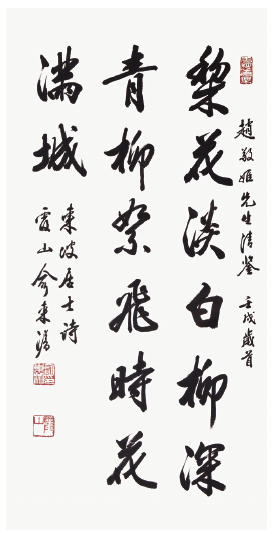 趙敬姬先生清鑒 壬戌歲首
梨花淡白柳深
青柳絮飛時花
滿城
東坡居士詩
霞山